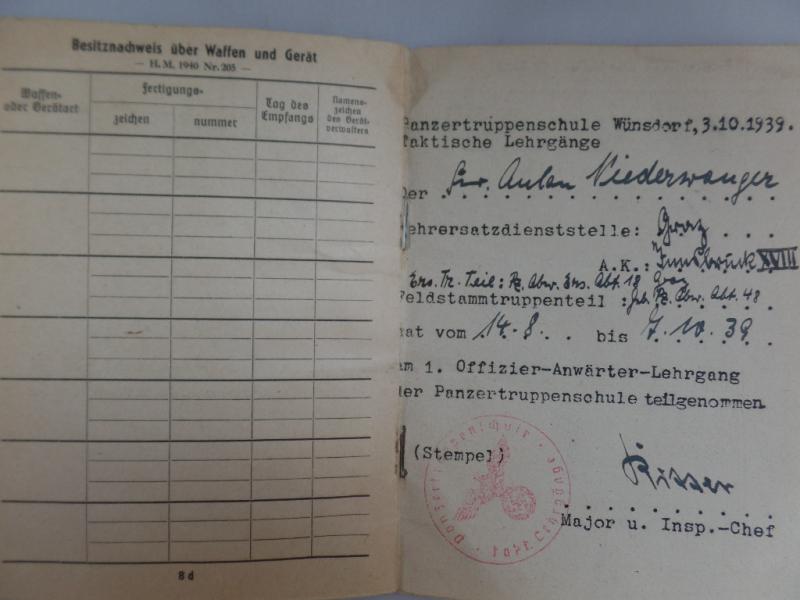 Besitznachweis über Waffen und Gerät
— H.M. 1940 Nr. 205 —
Waffen- oder Gerätart
Fertigungs-
zeichen
nummer
Tag des Empfangs
Namens-zeichen des Gerät-verwalters
8 d
Panzertruppenschule Wünsdorf, 3.10.1939.
Taktische Lehrgänge
Der Niederwanger
Wehrersatzdienststelle: Graz
A.K.: Innsbruck XVIII
Ers. Tr. Teil: Pz. Abw. Ers. Abt. 18 Graz
Feldstammtruppenteil : Geb. Pz. Abw. Abt. 48
hat vom 14.8. bis 7.10.39
am 1. Offizier-Anwärter-Lehrgang
der Panzertruppenschule teilgenommen
(Stempel)
Ritter
Major u. Insp.-Chef